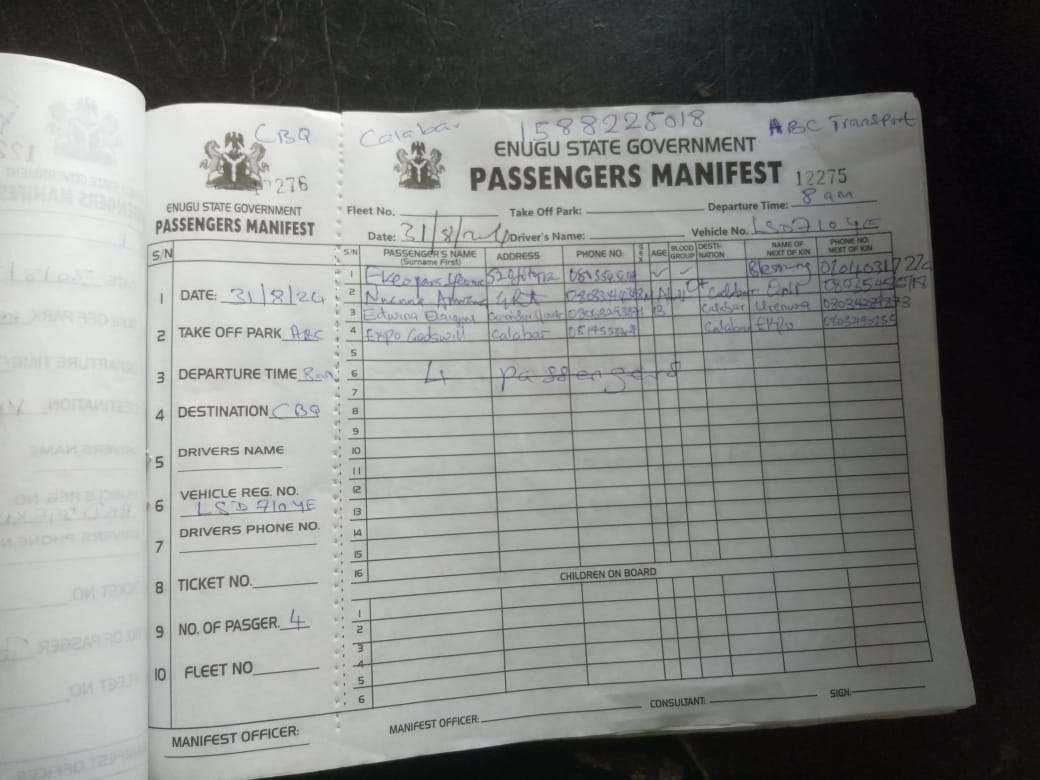 CBQ
12276
ENUGU STATE GOVERNMENT
PASSENGERS MANIFEST
S/N
1 DATE: 31/8/24
2 TAKE OFF PARK ABC
3 DEPARTURE TIME 8am
4 DESTINATION CBQ
5 DRIVERS NAME
6 VEHICLE REG. NO.
LSD 710 YE
7 DRIVERS PHONE NO.
8 TICKET NO.
9 NO. OF PASGER. 4
10 FLEET NO
MANIFEST OFFICER:
Calabar 1588228018 ABC Transport
ENUGU STATE GOVERNMENT
PASSENGERS MANIFEST 12275
Fleet No. Take Off Park: Departure Time: 8am
Date: 31/8/24 Driver's Name: Vehicle No. LSD710YE
S/N PASSENGER'S NAME (Surname First) ADDRESS PHONE NO. SEX AGE BLOOD GROUP DESTI-NATION NAME OF NEXT OF KIN PHONE NO. NEXT OF KIN
1 Blessing
2 Calabar
3 Edwina Calabar
4 Ekpo Godswill Calabar Calabar Ekpo
5
6 4 passengers
7
8
9
10
11
12
13
14
15
16
CHILDREN ON BOARD
1
2
3
4
5
6
MANIFEST OFFICER: CONSULTANT: SIGN: